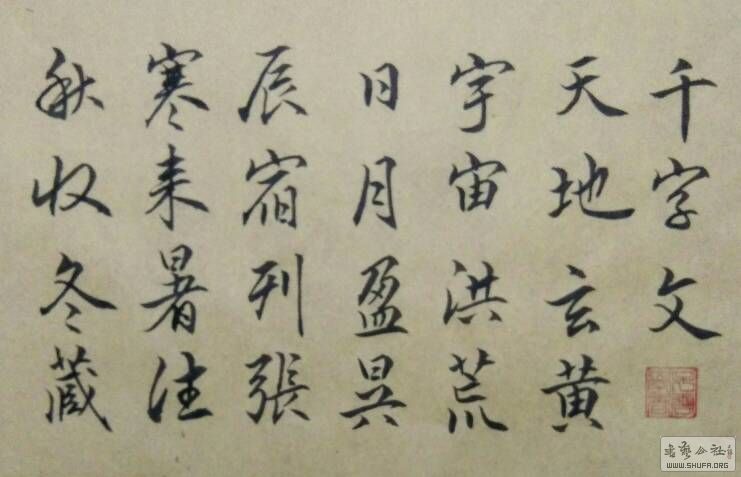 千字文
天地玄黄
宇宙洪荒
日月盈昃
辰宿列張
寒来暑往
秋收冬藏
书艺公社
WWW.SHUFA.ORG